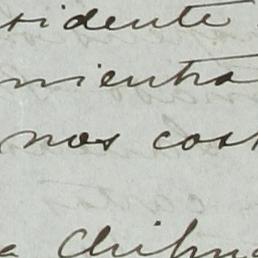 sidente
mientra
nos cost
a Chispa